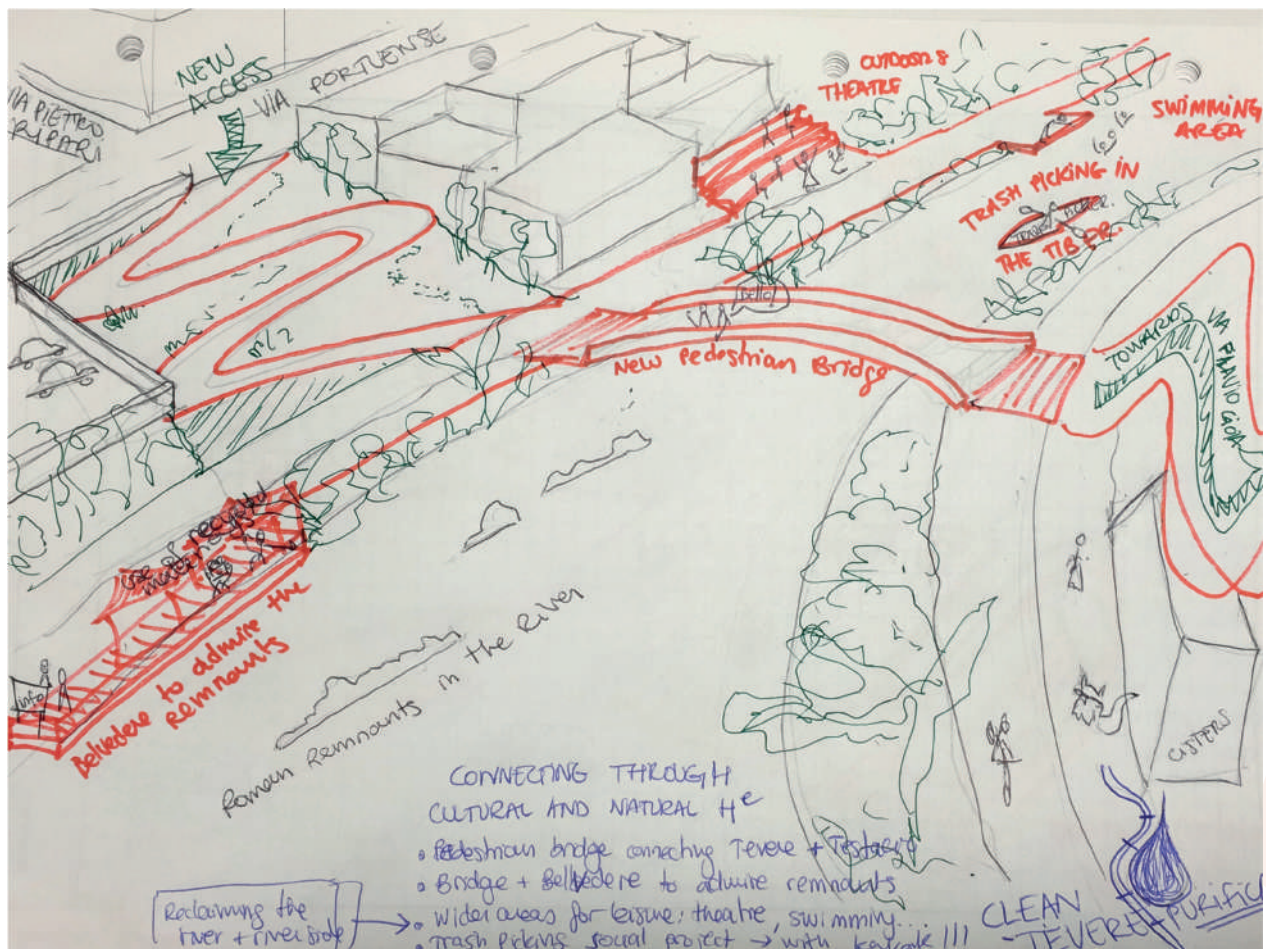 NEW
ACCESS
VIA PORTUENSE
VIA PIETRO
RIPARI
OUTDOORS
THEATRE
SWIMMING
AREA
TRASH PICKING IN
THE TIBER.
Bello!
New Pedestrian Bridge
TOWARDS VIA
use of recycled
materials
Belvedere to admire the
Remnants
info
Roman Remnants in the River
CISTERS
CONNECTING THROUGH
CULTURAL AND NATURAL He
• Pedestrian bridge connecting Tevere + Testaccio
• Bridge + Bellvedere to admire remnants
• wider areas for leisure: theatre, swimming...
• Trash picking social project → with kayak !!!
Reclaiming the
river + river side
CLEAN
TEVERE
PURIFIC